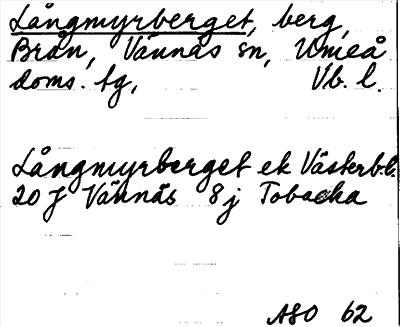 Långmyrberget, berg,
Brån, Vännäs sn, Umeå
doms. tg, Vb. l.
Långmyrberget ek Västerb.l.
20 J Vännäs 8 j Tobacka
ASO 62